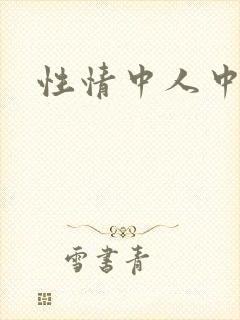 性情中人中
雪书青